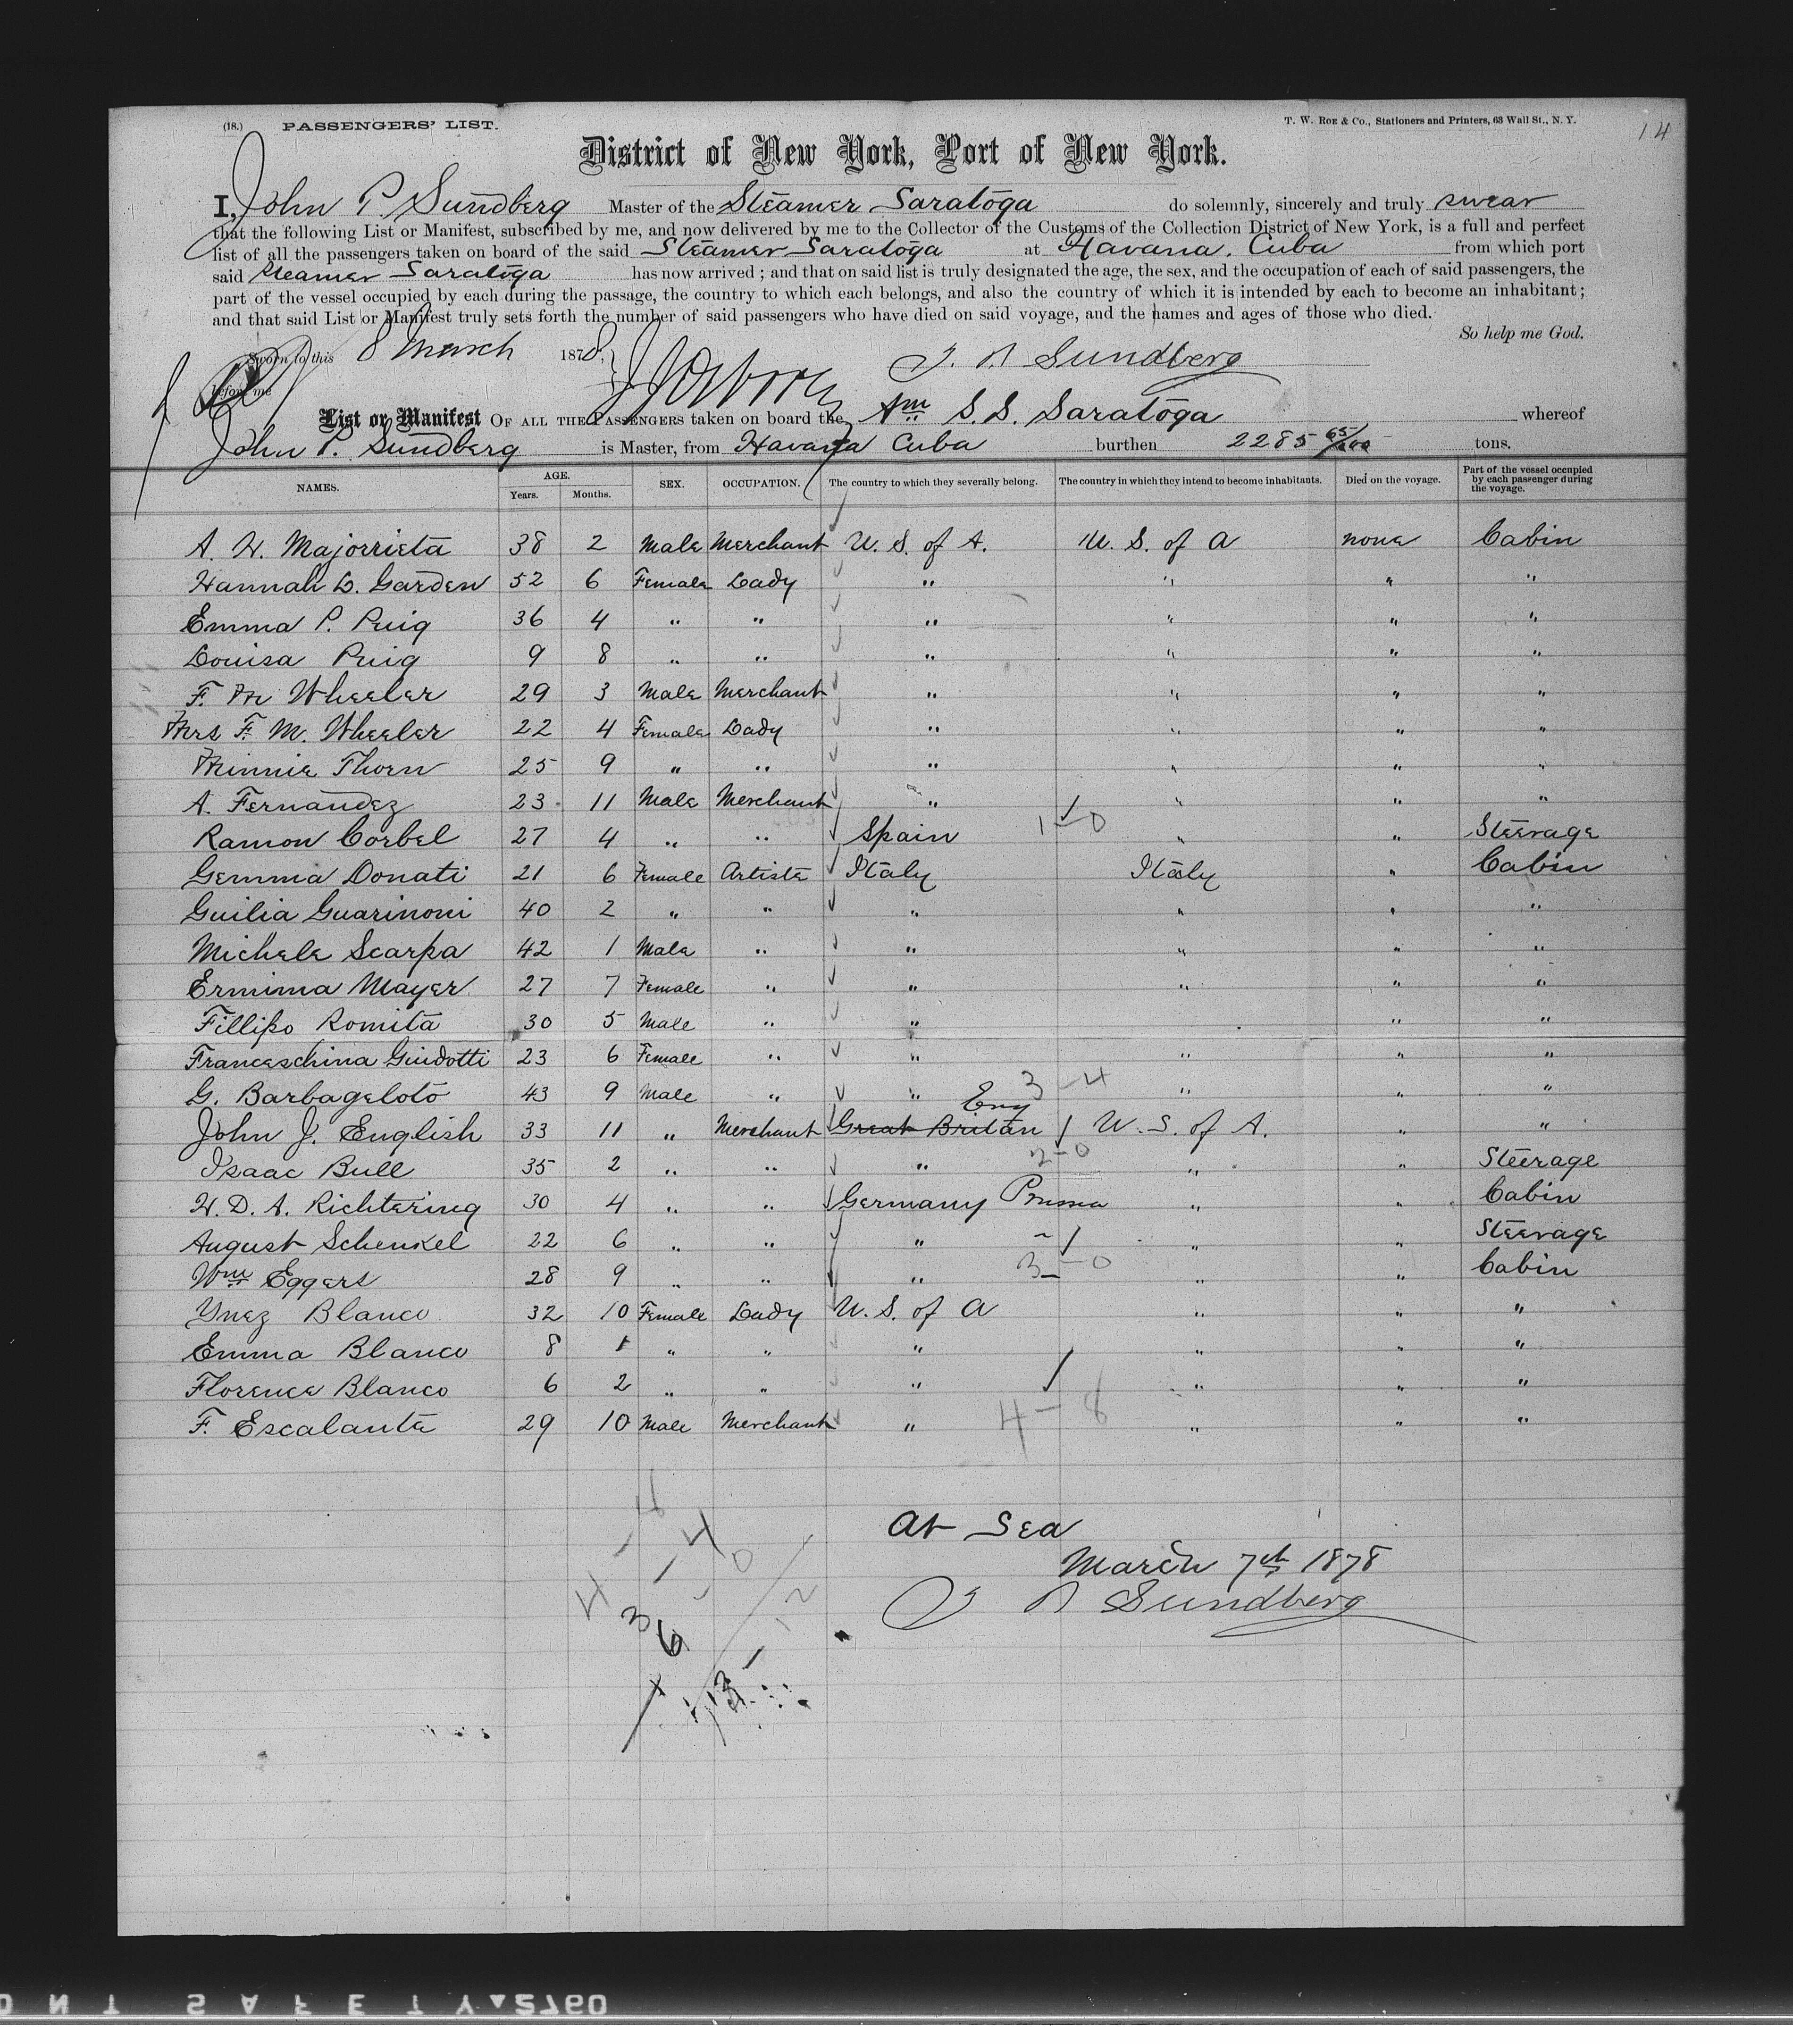 (18.) PASSENGERS' LIST.
T. W. Roe & Co., Stationers and Printers, 63 Wall St., N. Y.
14
District of New York, Port of New York.
I, John P. Sundberg Master of the Steamer Saratoga do solemnly, sincerely and truly swear
that the following List or Manifest, subscribed by me, and now delivered by me to the Collector of the Customs of the Collection District of New York, is a full and perfect
list of all the passengers taken on board of the said Steamer Saratoga at Havana, Cuba from which port
said Steamer Saratoga has now arrived; and that on said list is truly designated the age, the sex, and the occupation of each of said passengers, the
part of the vessel occupied by each during the passage, the country to which each belongs, and also the country of which it is intended by each to become an inhabitant;
and that said List or Manifest truly sets forth the number of said passengers who have died on said voyage, and the names and ages of those who died.
So help me God.
Sworn to this 8 March 1878,
J. P. Sundberg
before me
List or Manifest OF ALL THE PASSENGERS taken on board the Am S. S. Saratoga whereof
John P. Sundberg is Master, from Havana Cuba burthen 2285 65/100 tons.
NAMES. AGE. Years. Months. SEX. OCCUPATION. The country to which they severally belong. The country in which they intend to become inhabitants. Died on the voyage. Part of the vessel occupied by each passenger during the voyage.
A. H. Majorrieta 38 2 Male Merchant U. S. of A. U. S. of A none Cabin
Hannah L. Garden 52 6 Female Lady " " " "
Emma P. Puig 36 4 " " " " " "
Louisa Puig 9 8 " " " " " "
F. M Wheeler 29 3 Male Merchant " " " "
Mrs F. M. Wheeler 22 4 Female Lady " " " "
Minnie Thorn 25 9 " " " " " "
A. Fernandez 23 11 Male Merchant " " " "
Ramon Corbel 27 4 " " Spain 1-0 " " Steerage
Gemma Donati 21 6 Female Artiste Italy Italy " Cabin
Guilia Guarinoni 40 2 " " " " " "
Michele Scarpa 42 1 Male " " " " "
Ermima Mayer 27 7 Female " " " " "
Fillipo Romita 30 5 Male " " " "
Franceschina Guidotti 23 6 Female " " " " "
G. Barbageloto 43 9 Male " " 3-4 " " "
John J. English 33 11 " Merchant Great Britan Eng U. S. of A. " "
Isaac Bull 35 2 " " " 2-0 " " Steerage
H. D. A. Richtering 30 4 " " Germany Prussia " " Cabin
August Schenkel 22 6 " " " " " Steerage
Wm Eggers 28 9 " " " 3-0 " " Cabin
Ynez Blanco 32 10 Female Lady U. S. of A " " "
Emma Blanco 8 1 " " " " " "
Florence Blanco 6 2 " " " " " "
F. Escalante 29 10 Male Merchant " 4-8 " " "
At Sea
March 7th 1878
J P Sundberg
4 - 8
3 - 4
6 - 0
13 - 12